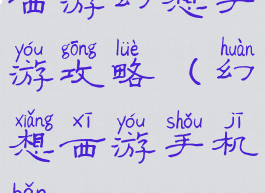 西游幻想手
yóu gōng lüè huàn
游攻略（幻
xiǎng xī yóu shǒu jī
想西游手机
bǎn